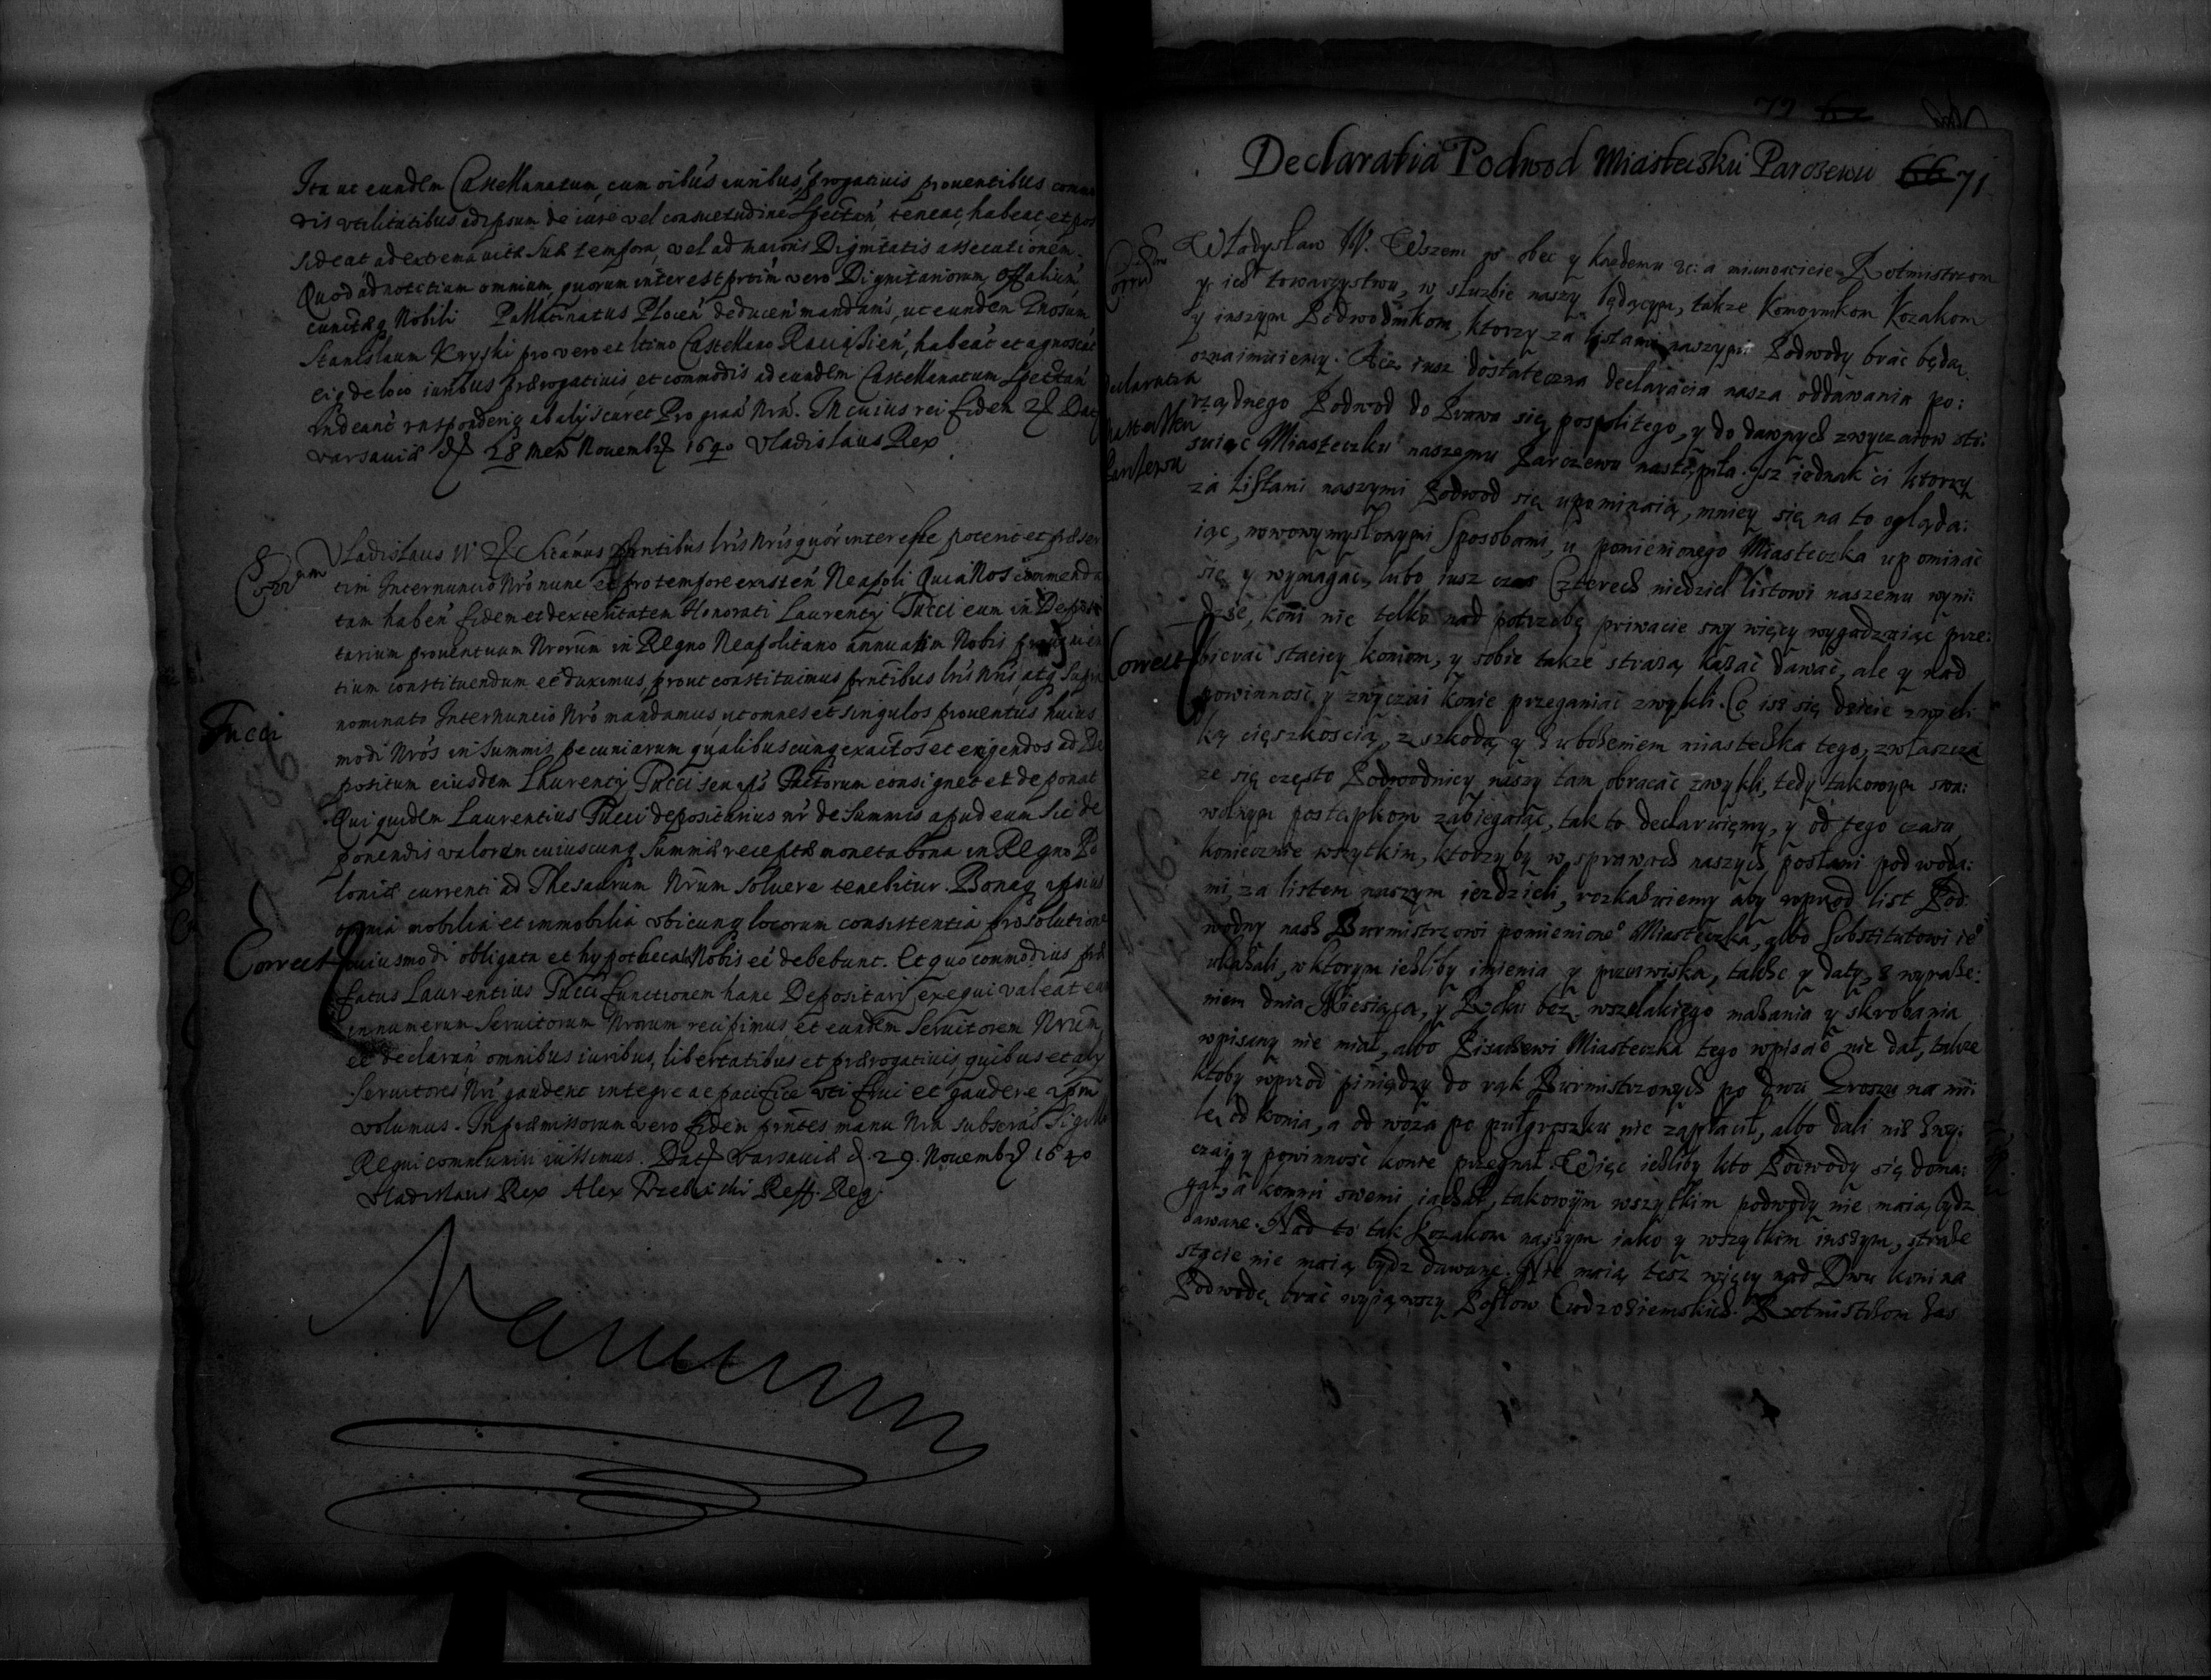 Ita ut eundem Castellanatum, cum oibus iuribus, progatiuis prouentibus
dis vtilitatibus ad ipsum de iure vel consuetudine spectan, teneat, habeat, et pos
sideat ad extrema vitæ suæ tempora, vel ad maioris Dignitatis assecutionem.
Quod ad notitiam omnium, quorum interest proim vero Dignitariorum, Officalium,
cunctæq Nobili Pallatinatus Plocen deducen mandans, ut eundem Gnosum
Stanislaum Kryski pro vero et ltimo Castellano Raciąsien, habeat et agnoscat
eiq de loco iuribus prærogatiuis, et commodis ad eundem Castellanatum spectan
indeant responderiq ab alijs curet Pro graa Nra. In cuius rei fidem Dat
Varsauiæ d 28 Mens Nouembr 1640 Vladislaus Rex
Vladislaus IV Sicamus pntibus lris Nris quor interesse poterit et præser
tim Internuncio Nro nunc et pro tempore existen Neapoli Quia Nos commenda
tam haben fidem et dexteritatem Honorati Laurentij Tucci eum in Deposi
tarium prouentuum Nrorum in Regno Neapolitano annuatim Nobis
tium constituendum eē duximus, prout constituimus pntibus lris Nris, atq Supra
nominato Internuncio Nro mandamus, ut omnes et singulos prouentus huius
Tucci
modi Nros in Summis pecuniarum qualibuscunq exactos et exigendos ad De
positum eiusdem Laurentij Tucci seu ipsius Factorum consignet et deponat
Qui quidem Laurentius Tucci depositarius nr de Summis apud eum sic de
ponendis valorem cuiuscunq Summæ receptæ moneta bona in Regno Po
loniæ currenti ad Thesaurum Nrum soluere tenebitur. Bonaq ipsius
omnia mobilia et immobilia vbicunq locorum consistentia pro solutione
Correct
huiusmodi obligata et hypothecata Nobis eē debebunt. Et quo commodius præ
fatus Laurentius Tucci functionem hanc Depositarij exequi valeat eum
in numerum Seruitorum Nrorum recipimus, et eundem Seruitorem Nrum
eē declaran, omnibus iuribus, libertatibus et prærogatiuis, quibus et alij
Seruitores Nri gaudent integre ac pacifice vti frui et gaudere ipsm
volumus. In præmissorum vero fidem pntes manu Nra subscras Sigillo
Regni communiri iussimus. Dat Varsauiæ d 29. Nouembr 1640
Vladislaus Rex Alex Trzebinski Reff. Reg.
Declaratia Podwod Miasteczku Parczewu 66 71
Władysław IV. Wszem w obec y kazdemu &c: a mianowicie Rotmistrzom
y ich towarzystwu, w sluzbie naszy będącym, takze Komornikom Kozakom
y inszym Podwodnikom, ktorzy za listami naszymi Podwody brac będą.
oznaimuiemy. Acz iusz dostateczna declaracia nasza oddawania po:
rządnego Podwod do Prawa się pospolitego, y do dawnych zwyczaiow sto:
suiąc Miasteczku naszemu Parczewu nastąpiła. Isz iednak ci ktorzy
za Listami naszymi Podwod się upominaią, mniey się na to ogląda:
iąc, nowowymyslonymi sposobami, u pomienionego Miasteczka upominac
się y wymagac, lubo iusz czas Czterech niedziel listowi naszemu wyni:
dzie, koni nie telko nad potrzebę priwacie swy więcy wygadzaiąc prze:
Correct
bierac staciey koniom, y sobie takze strawą kazac dawac, ale y nad
powinnosc y zwyczai konie przeganiac zwykli. Co isz się dzieie z wiel
ką cięszkoscią, z szkodą y z ubozeniem miasteczka tego, zwłaszcza
ze się często Podwodnicy naszy tam obracac zwykli, tedy takowym swa:
wolnym postępkom zabiegaiąc, tak to declaruiemy, y od tego czasu
koniecznie wszytkim, ktorzy by w sprawach naszych posłani podwoda:
mi, za listem naszym iezdzieli, rozkazuiemy aby wprzod list Pod:
wodny nasz Burmistrzowi pomienione Miasteczka, albo Substitutowi ie
ukazali, w ktorym iesliby imienia y przezwiska, takze y daty, z wyraze:
niem dnia Miesiąca, y Roku bez wszelakiego mazania y skrobania
wpisany nie miał, albo Pisarzewi Miasteczka tego wpisac nie dał, takze
ktoby wprzod piniędzy do rąk Burmistrzowych po dwu Groszu na mi:
lę od konia, a od woza po pułgroszku nie zapłacił, albo dali nisz zwy:
czai y powinnosc konie przegnał. Więc iesliby kto Podwody się doma:
gał, a konmi swemi iachał, takowym wszytkim podwody nie maią bydz
dawane. Nad to tak Kozakom naszym iako y wszytkim inszym, straże
stącie nie maią bydz dawane. Nie maią tesz więcy nad Dwu koni na
Podwodę, brac wyiąwszy Posłow Cudzoziemskich. Rotmistrzom zas